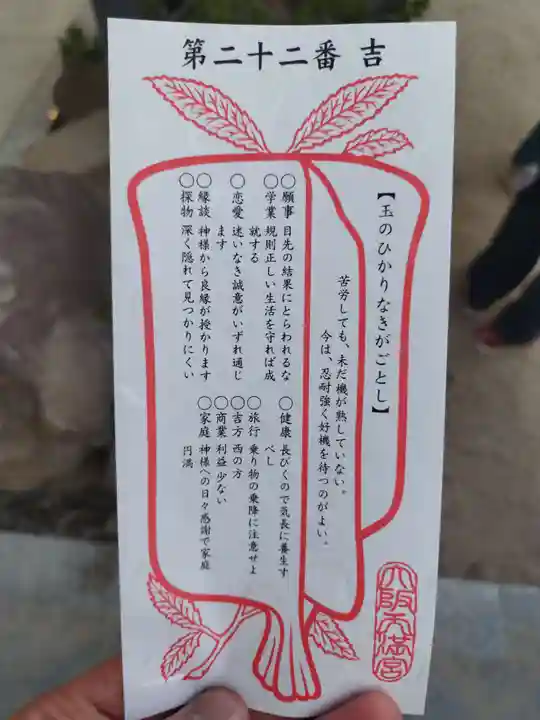 第二十二番 吉
【玉のひかりなきがごとし】
苦労しても、未だ機が熟していない。
今は、忍耐強く好機を待つのがよい。
○願事 目先の結果にとらわれるな
○学業 規則正しい生活を守れば成
就する
○恋愛 迷いなき誠意がいずれ通じ
ます
○縁談 神様から良縁が授かります
○探物 深く隠れて見つかりにくい
○健康 長びくので気長に養生す
べし
○旅行 乗り物の乗降に注意せよ
○吉方 西の方
○商業 利益少ない
○家庭 神様への日々感謝で家庭
円満
大阪天満宮